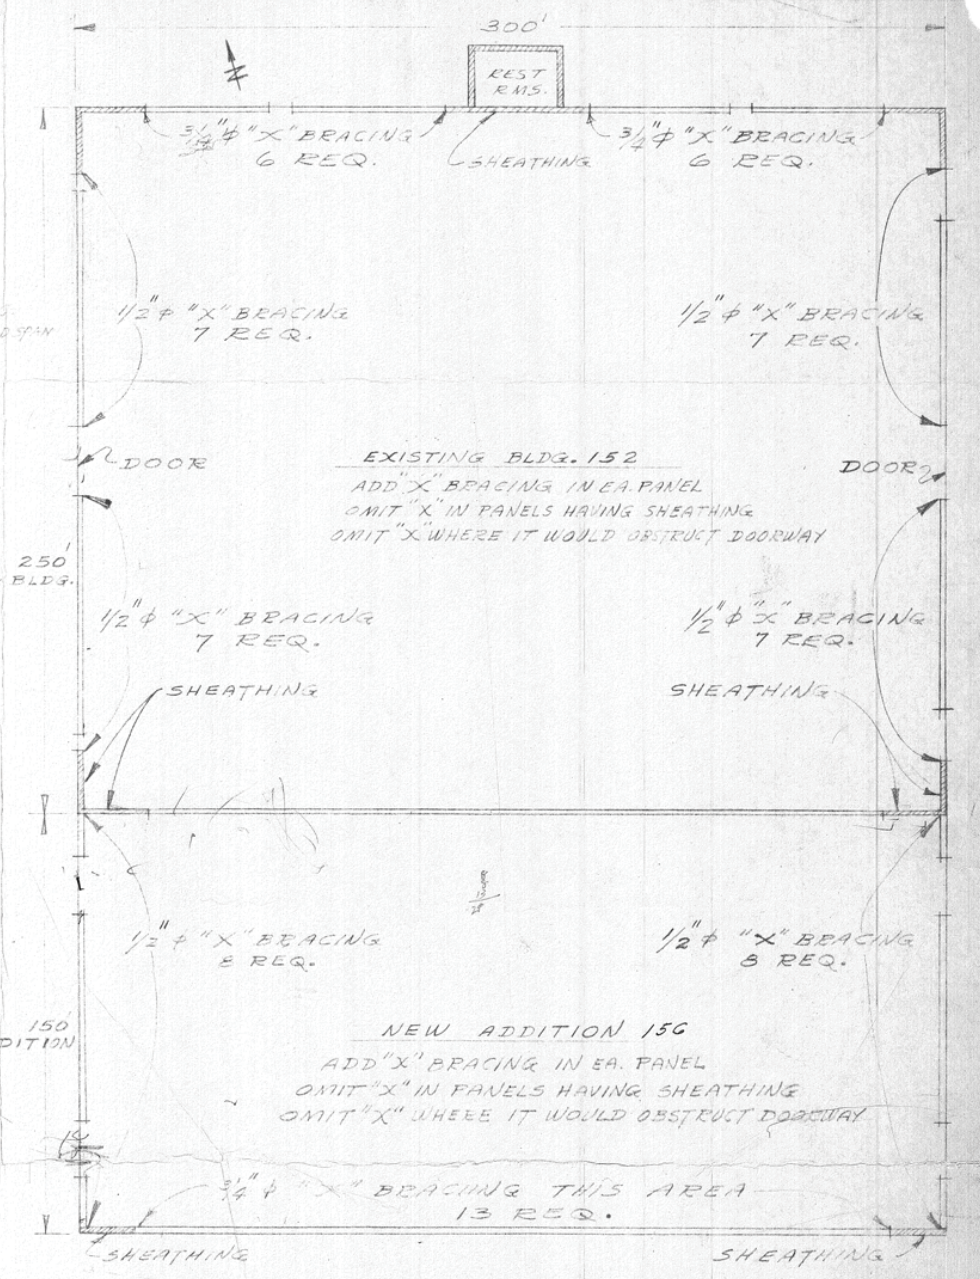 300'
N
REST
RMS.
3/4"φ "X" BRACING
6 REQ.
SHEATHING
3/4"φ "X" BRACING
6 REQ.
1/2"φ "X" BRACING
7 REQ.
1/2"φ "X" BRACING
7 REQ.
SPAN
DOOR
EXISTING BLDG. 152
DOOR
ADD "X" BRACING IN EA. PANEL
OMIT "X" IN PANELS HAVING SHEATHING
OMIT "X" WHERE IT WOULD OBSTRUCT DOORWAY
250'
BLDG.
1/2"φ "X" BRACING
7 REQ.
1/2"φ "X" BRACING
7 REQ.
SHEATHING
SHEATHING
1/2"φ "X" BRACING
8 REQ.
1/2"φ "X" BRACING
8 REQ.
150'
DITION
NEW ADDITION 156
ADD "X" BRACING IN EA. PANEL
OMIT "X" IN PANELS HAVING SHEATHING
OMIT "X" WHERE IT WOULD OBSTRUCT DOORWAY
3/4"φ "X" BRACING THIS AREA
13 REQ.
SHEATHING
SHEATHING